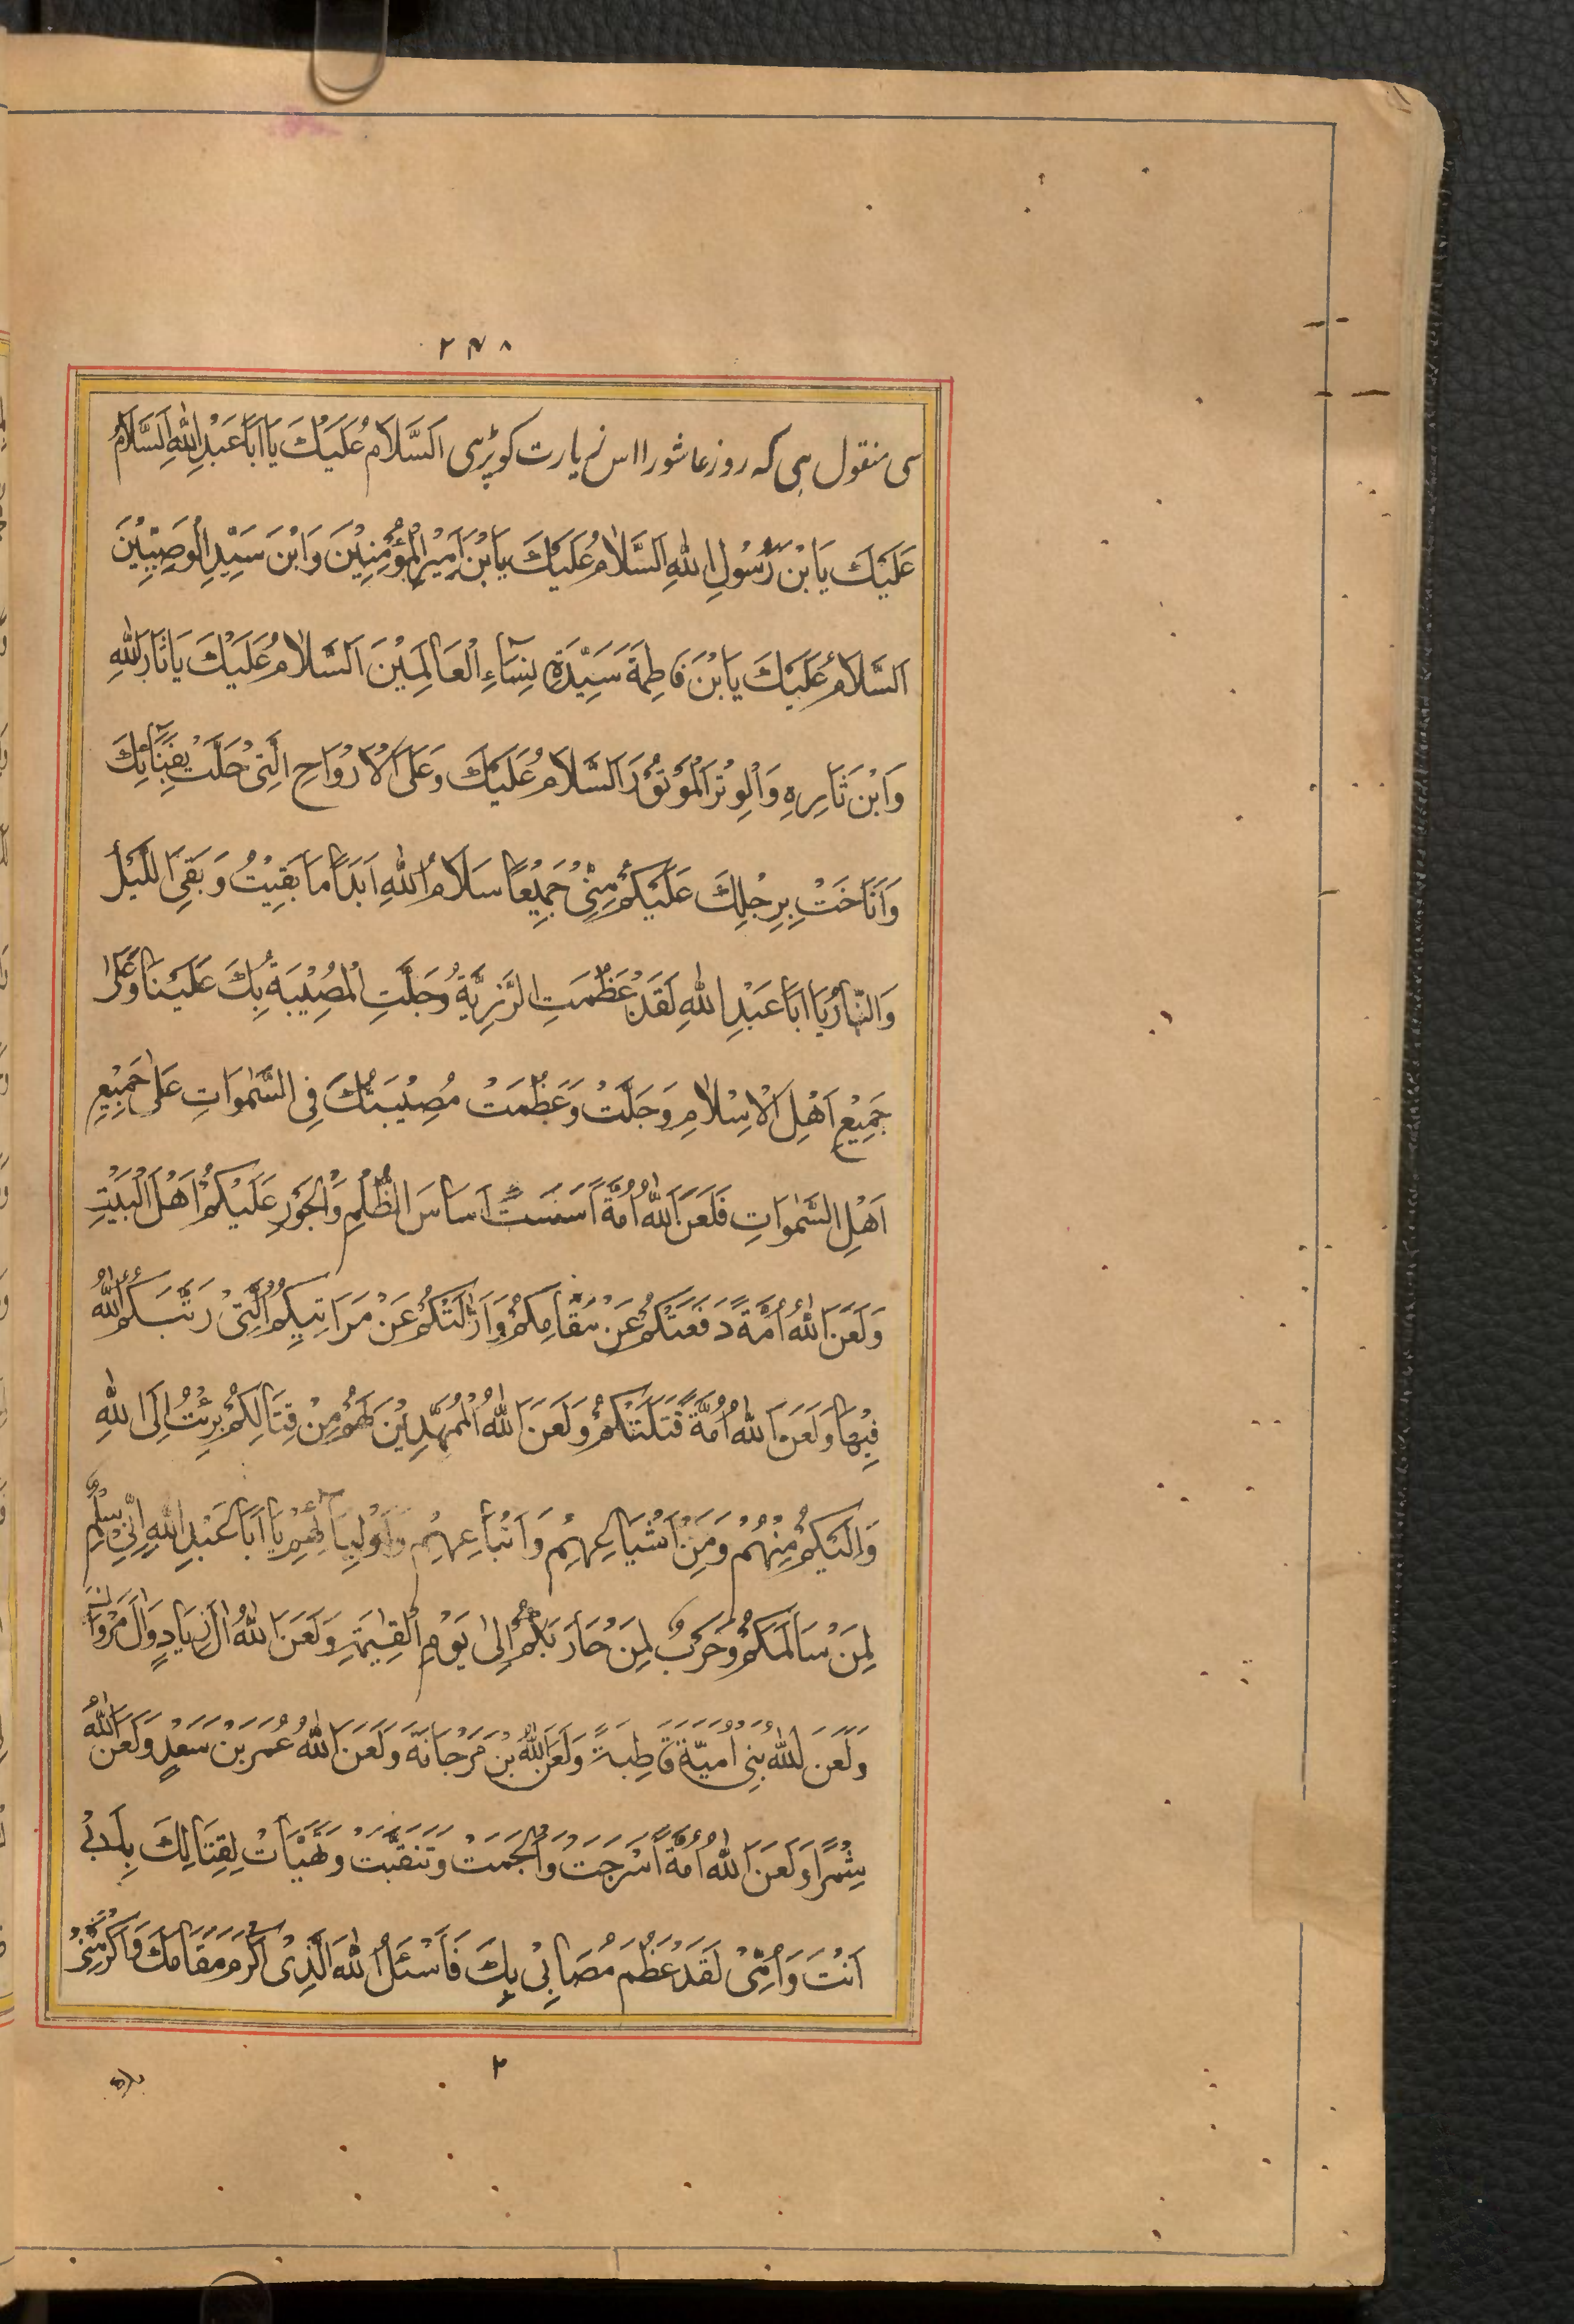 ۲۴۸
سی منقول ہی کہ روز عاشورا اس زیارت کو پڑہی اَلسَّلَامُ عَلَيْكَ يَا اَبَا عَبْدِ اللهِ اَلسَّلَامُ
عَلَيْكَ يَا بْنَ رَسُوْلِ اللهِ اَلسَّلَامُ عَلَيْكَ يَا بْنَ اَمِيْرِ الْمُؤْمِنِيْنَ وَابْنَ سَيِّدِ الْوَصِيِّيْنَ
اَلسَّلَامُ عَلَيْكَ يَا بْنَ فَاطِمَةَ سَيِّدَةِ نِسَآءِ الْعَالَمِيْنَ اَلسَّلَامُ عَلَيْكَ يَا ثَارَ اللهِ
وَابْنَ ثَارِهِ وَالْوِتْرَ الْمَوْتُوْرَ اَلسَّلَامُ عَلَيْكَ وَعَلَى الْاَرْوَاحِ الَّتِيْ حَلَّتْ بِفِنَآئِكَ
وَاَنَاخَتْ بِرِحْلِكَ عَلَيْكُمْ مِنِّيْ جَمِيْعًا سَلَامُ اللهِ اَبَدًا مَا بَقِيْتُ وَبَقِيَ اللَّيْلُ
وَالنَّهَارُ يَا اَبَا عَبْدِ اللهِ لَقَدْ عَظُمَتِ الرَّزِيَّةُ وَجَلَّتِ الْمُصِيْبَةُ بِكَ عَلَيْنَا وَعَلٰى
جَمِيْعِ اَهْلِ الْاِسْلَامِ وَجَلَّتْ وَعَظُمَتْ مُصِيْبَتُكَ فِي السَّمٰوَاتِ عَلٰى جَمِيْعِ
اَهْلِ السَّمٰوَاتِ فَلَعَنَ اللهُ اُمَّةً اَسَّسَتْ اَسَاسَ الظُّلْمِ وَالْجَوْرِ عَلَيْكُمْ اَهْلَ الْبَيْتِ
وَلَعَنَ اللهُ اُمَّةً دَفَعَتْكُمْ عَنْ مَقَامِكُمْ وَاَزَالَتْكُمْ عَنْ مَرَاتِبِكُمُ الَّتِيْ رَتَّبَكُمُ اللهُ
فِيْهَا وَلَعَنَ اللهُ اُمَّةً قَتَلَتْكُمْ وَلَعَنَ اللهُ الْمُمَهِّدِيْنَ لَهُمْ مِنْ قِتَالِكُمْ بَرِئْتُ اِلَى اللهِ
وَاِلَيْكُمْ مِنْهُمْ وَمِنْ اَشْيَاعِهِمْ وَاَتْبَاعِهِمْ وَاَوْلِيَآئِهِمْ يَا اَبَا عَبْدِ اللهِ اِنِّيْ سِلْمٌ
لِمَنْ سَالَمَكُمْ وَحَرْبٌ لِمَنْ حَارَبَكُمْ اِلٰى يَوْمِ الْقِيٰمَةِ وَلَعَنَ اللهُ اٰلَ زِيَادٍ وَاٰلَ مَرْوَانَ
وَلَعَنَ اللهُ بَنِيْ اُمَيَّةَ قَاطِبَةً وَلَعَنَ اللهُ بْنَ مَرْجَانَةَ وَلَعَنَ اللهُ عُمَرَ بْنَ سَعْدٍ وَلَعَنَ اللهُ
شِمْرًا وَلَعَنَ اللهُ اُمَّةً اَسْرَجَتْ وَاَلْجَمَتْ وَتَنَقَّبَتْ وَتَهَيَّأَتْ لِقِتَالِكَ بِاَبِيْ
اَنْتَ وَاُمِّيْ لَقَدْ عَظُمَ مُصَابِيْ بِكَ فَاَسْئَلُ اللهَ الَّذِيْ اَكْرَمَ مَقَامَكَ وَاَكْرَمَنِيْ
۲